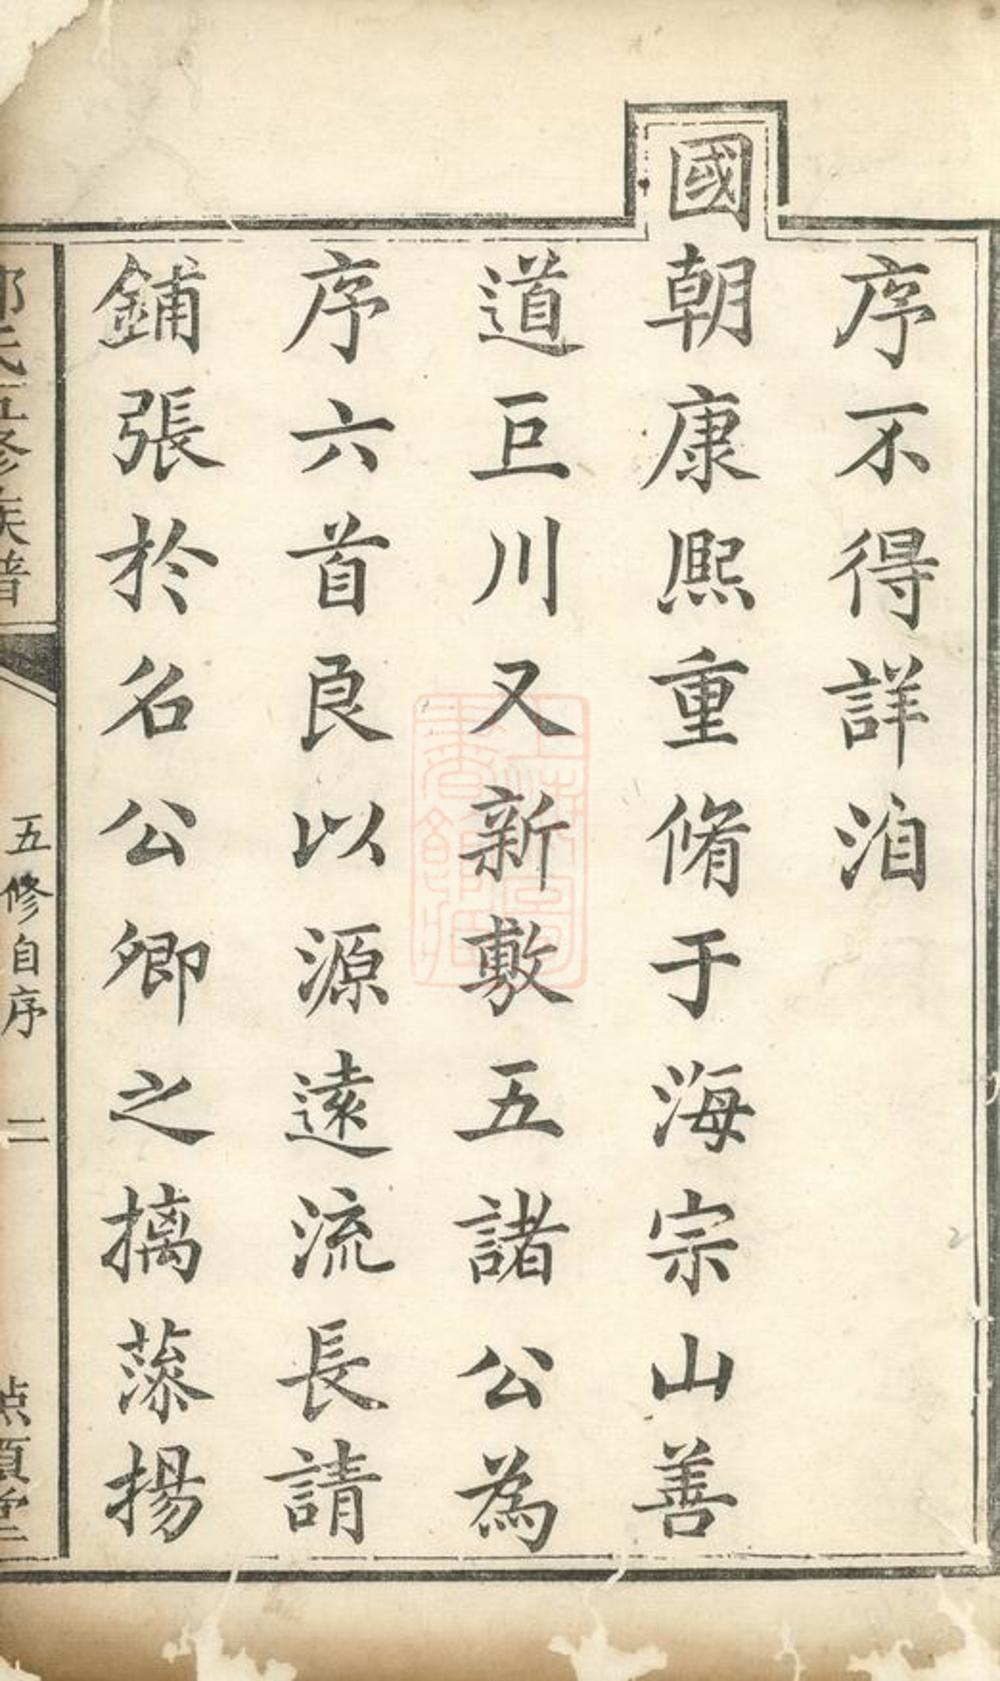 序不得詳洎
國朝康熙重脩于海宗山善
道巨川又新敷五諸公為
序六首良以源遠流長請
鋪張於名公卿之摛藻揚
氏五修族譜
五修自序
二